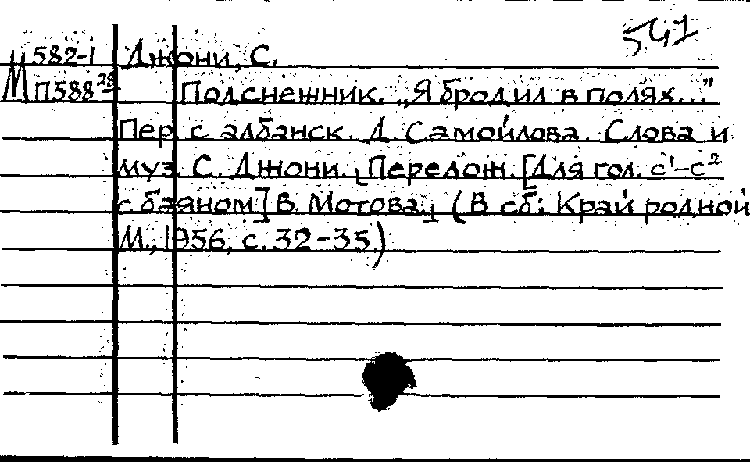 541
М 582-1 Джони, С.
П588 28 Подснежник. „Я бродил в полях..."
Пер. с албанск. Д. Самойлова. Слова и
муз. С. Джони. [Перелож. [Для гол. с¹-с²
с баяном] В. Мотова.] (В сб: Край родной
М., 1956, с. 32-35)